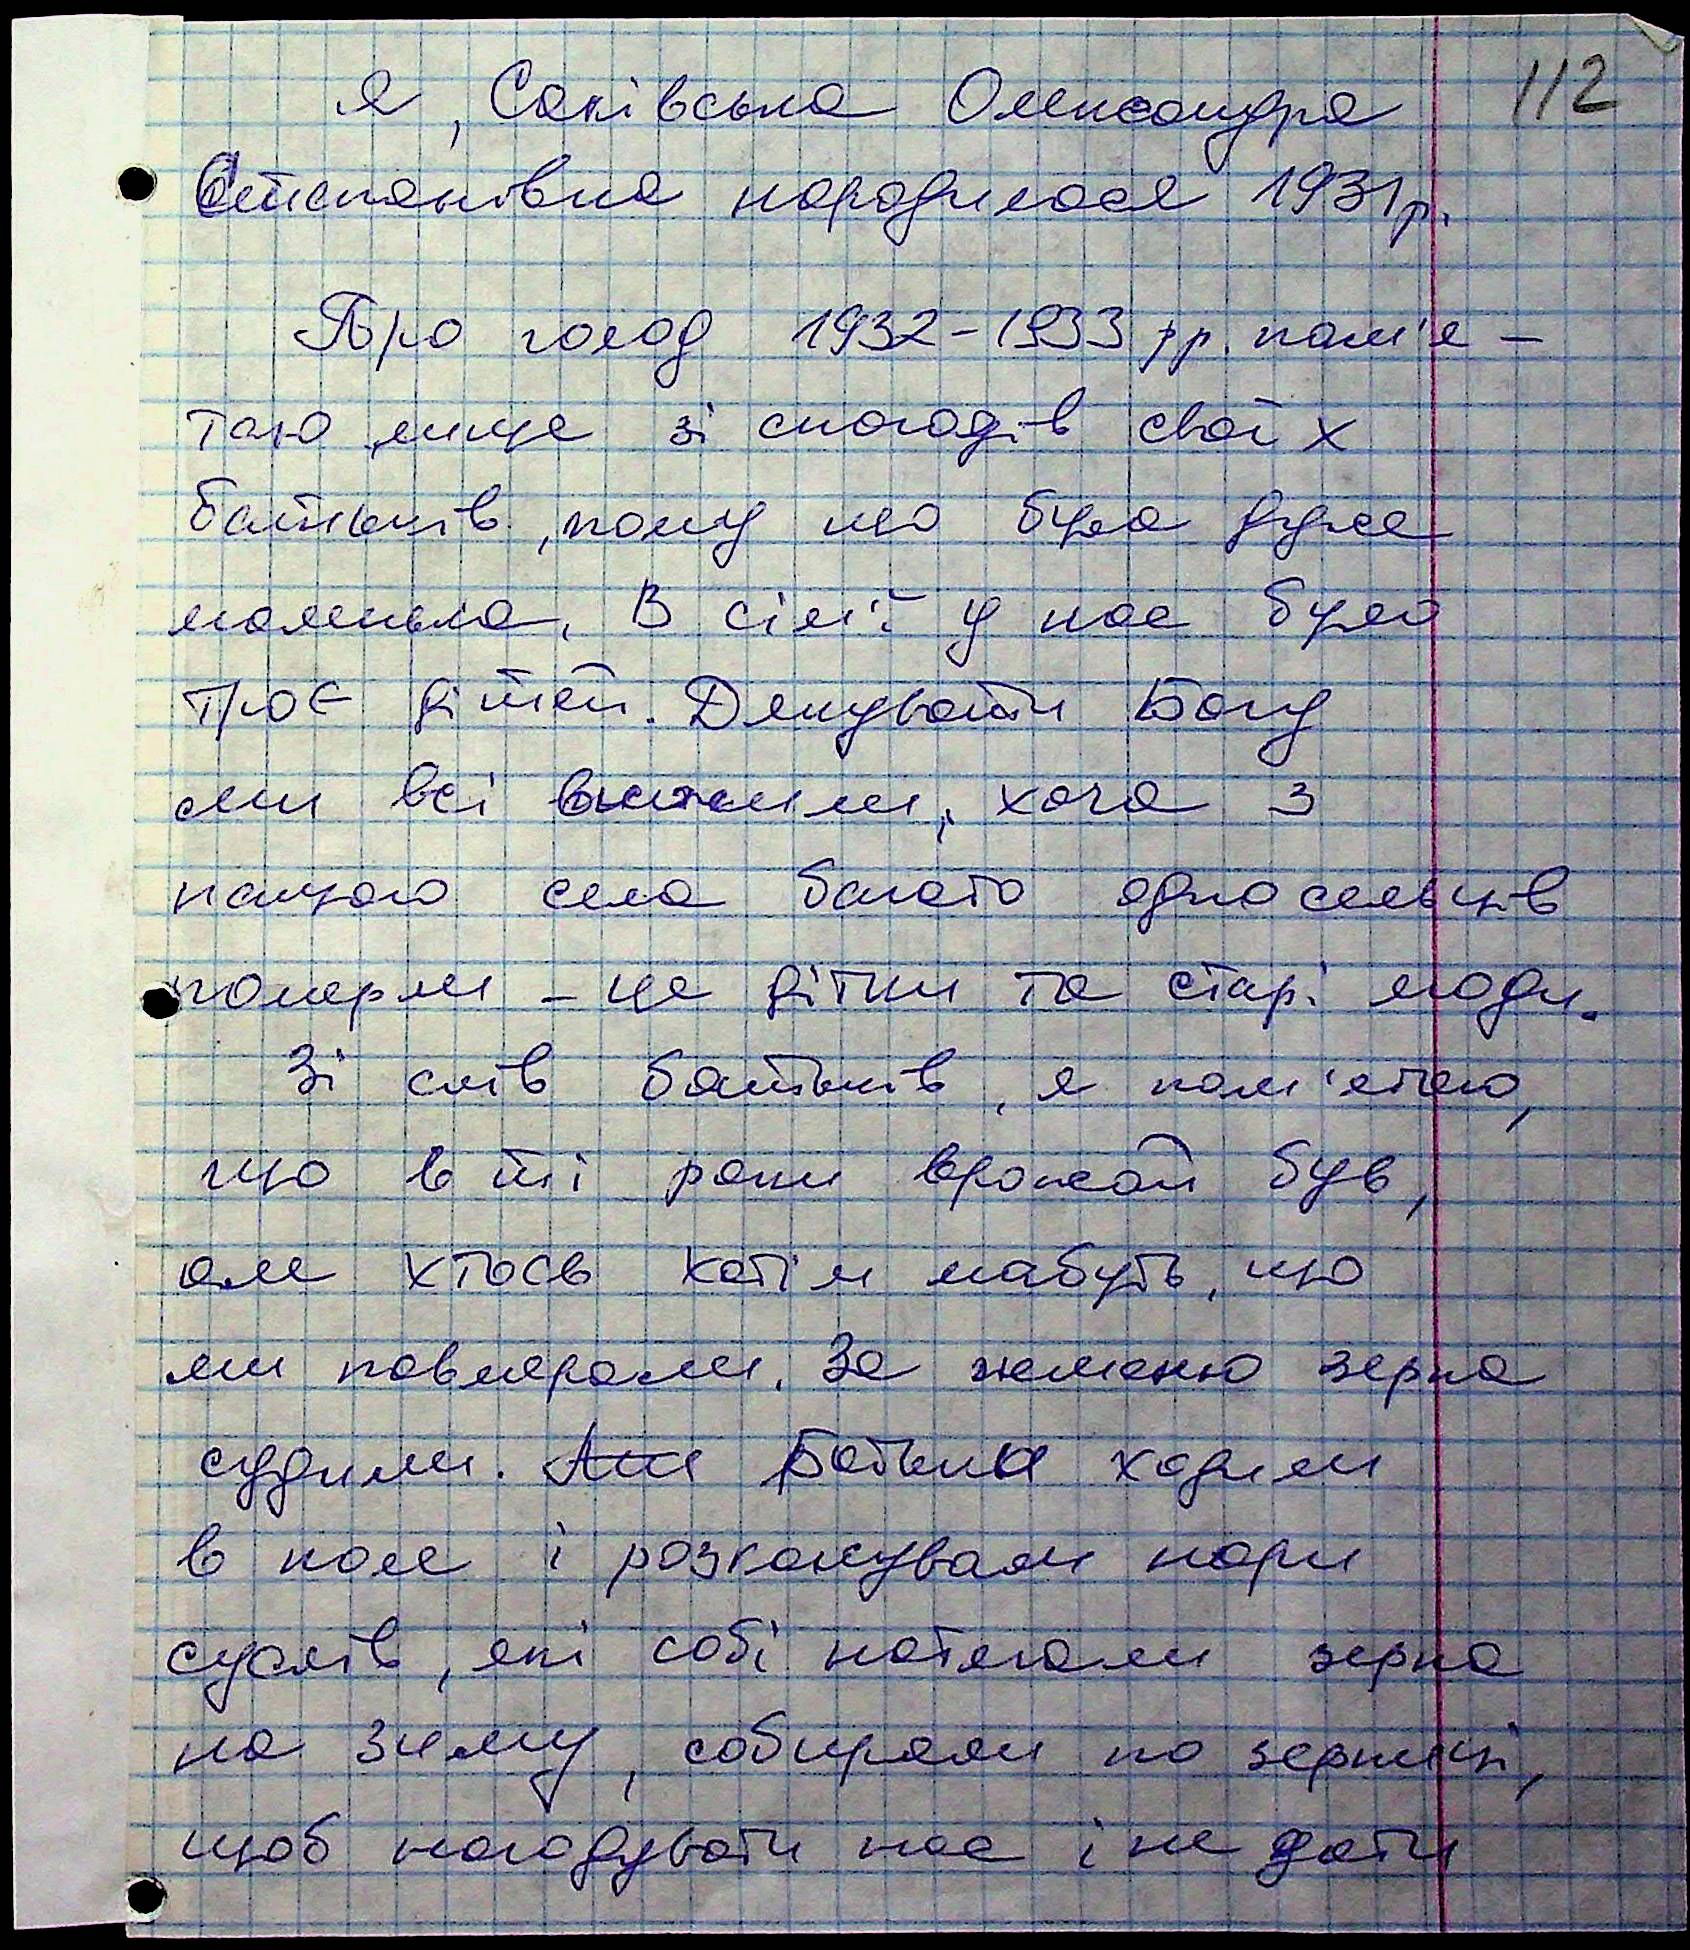 112
Я, Саківська Олександра
Степанівна народилася 1931р.
Про голод 1932-1933 рр. пам'я-
таю лише зі спогадів своїх
батьків, тому що була дуже
маленька. В сім'ї у нас було
троє дітей. Дякувати Богу
ми всі вижили, хоча з
нашого села багато односельців
померли - це дітки та старі люди.
Зі слів батьків, я пам'ятаю,
що в ті роки врожай був,
але хтось хотів мабуть, що
ми повмирали. За жменю зерна
судили. Батьки ходили
в поле і розкопували нори
сусликів, які собі натягали зерна
на зиму, собирали по зернині,
щоб нагодувати нас і не дати